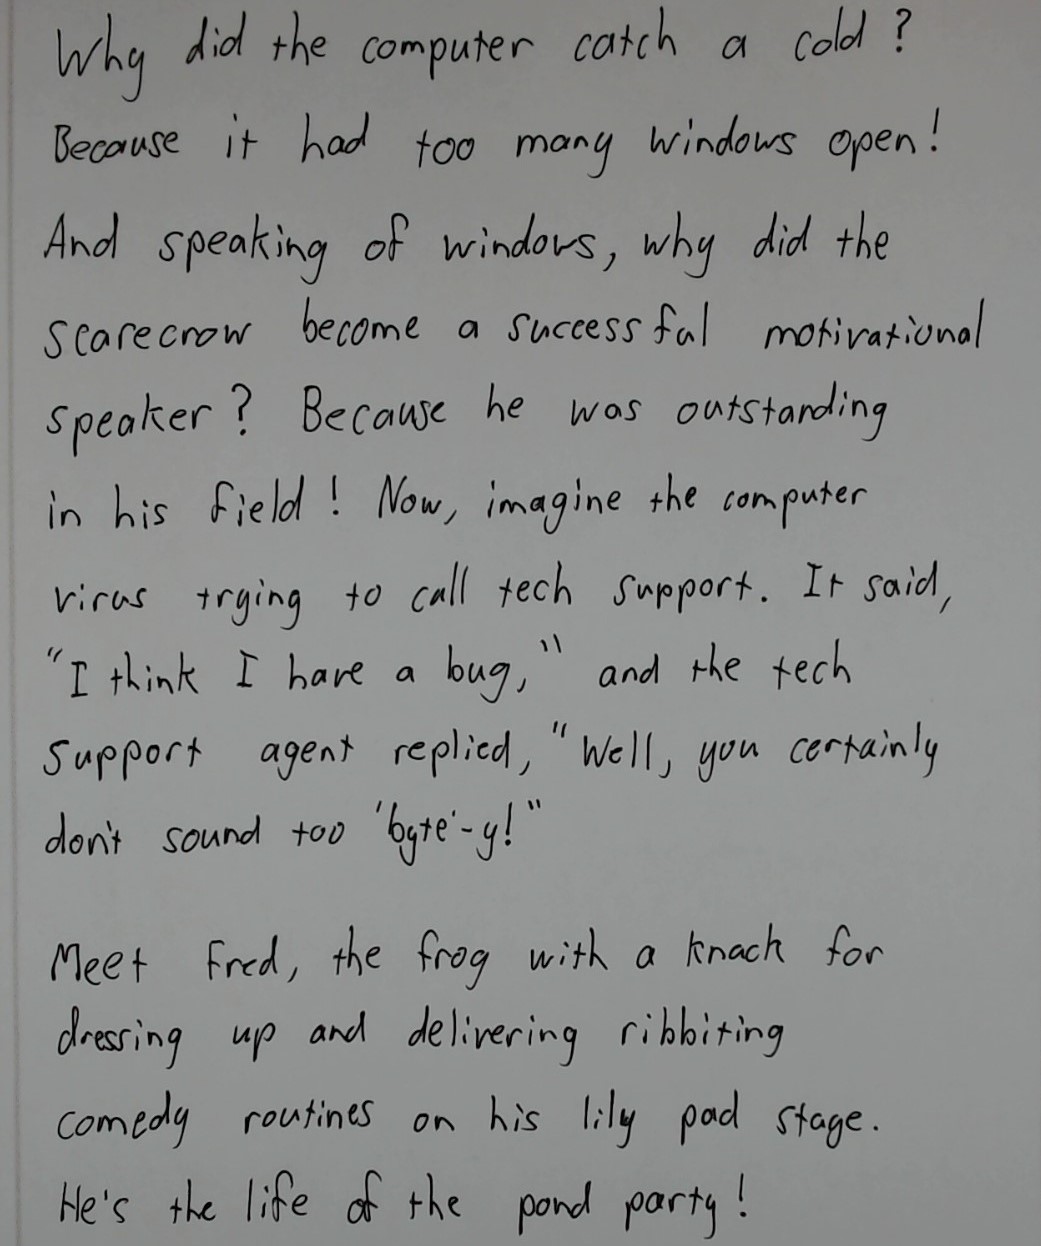 Why did the computer catch a cold?
Because it had too many windows open!
And speaking of windows, why did the
scarecrow become a successful motivational
speaker? Because he was outstanding
in his field! Now, imagine the computer
virus trying to call tech support. It said,
"I think I have a bug," and the tech
support agent replied, "Well, you certainly
don't sound too 'byte'-y!"
Meet Fred, the frog with a knack for
dressing up and delivering ribbiting
comedy routines on his lily pad stage.
He's the life of the pond party!